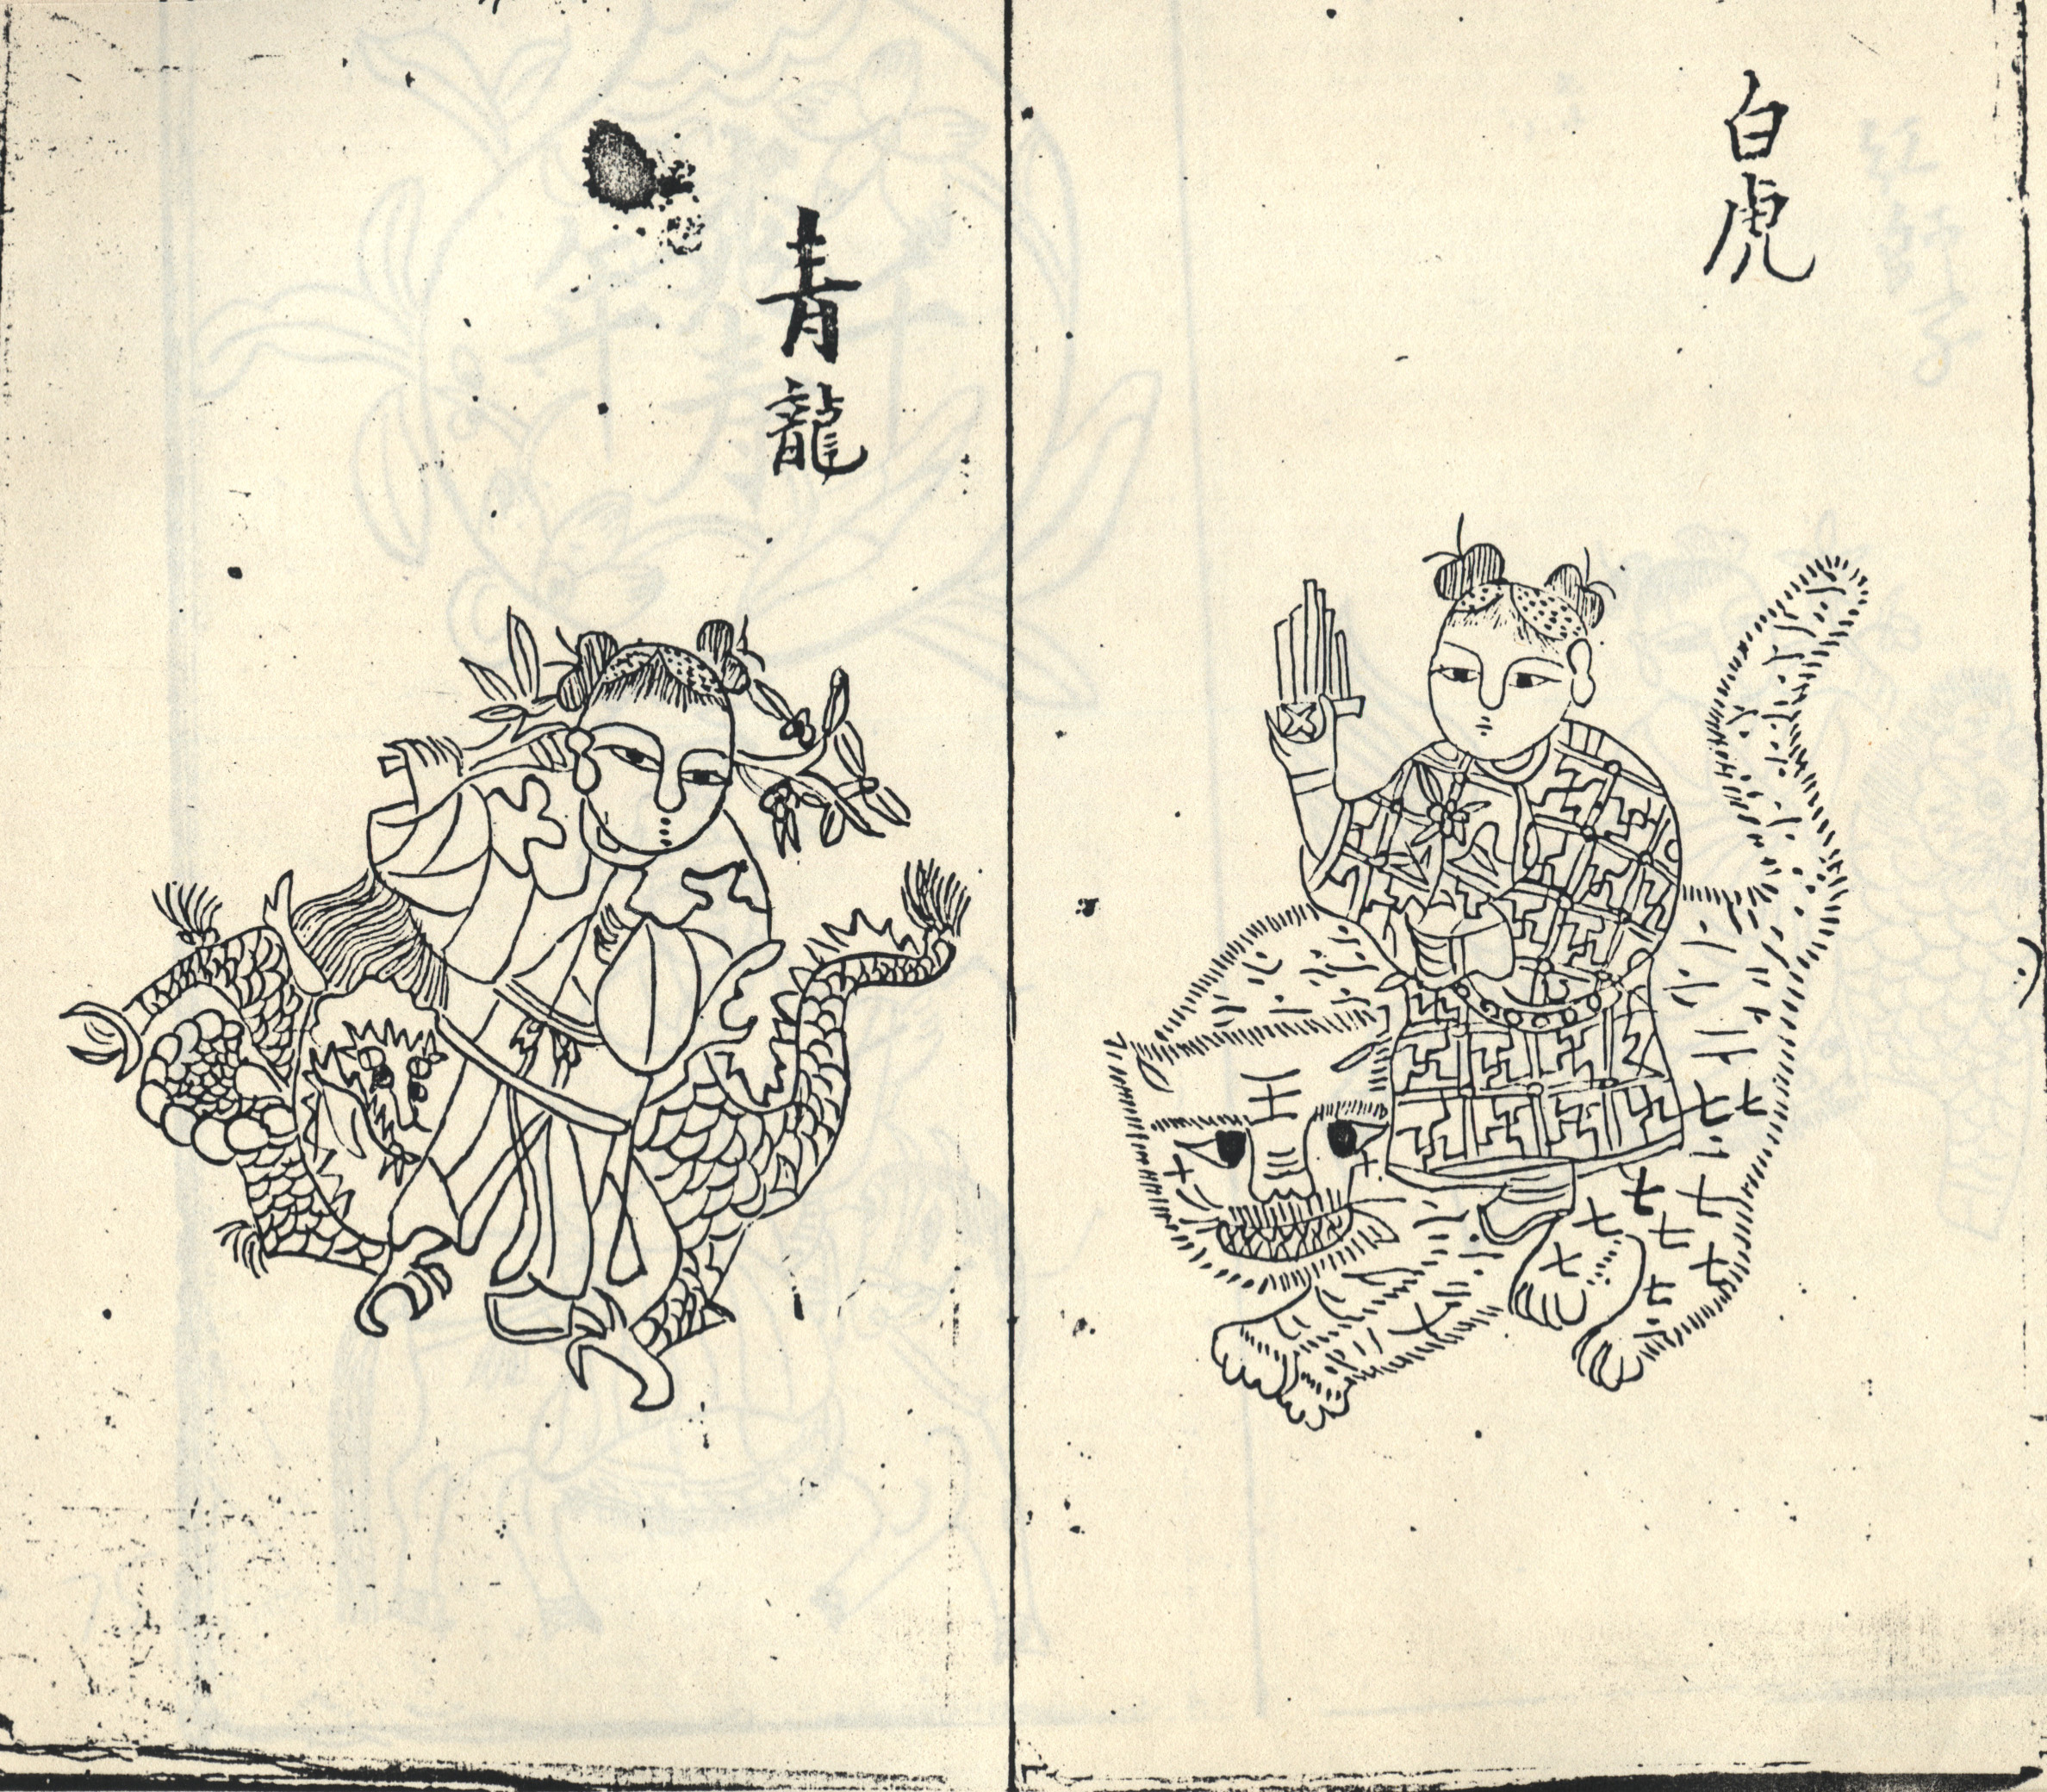 白虎
青龍
王